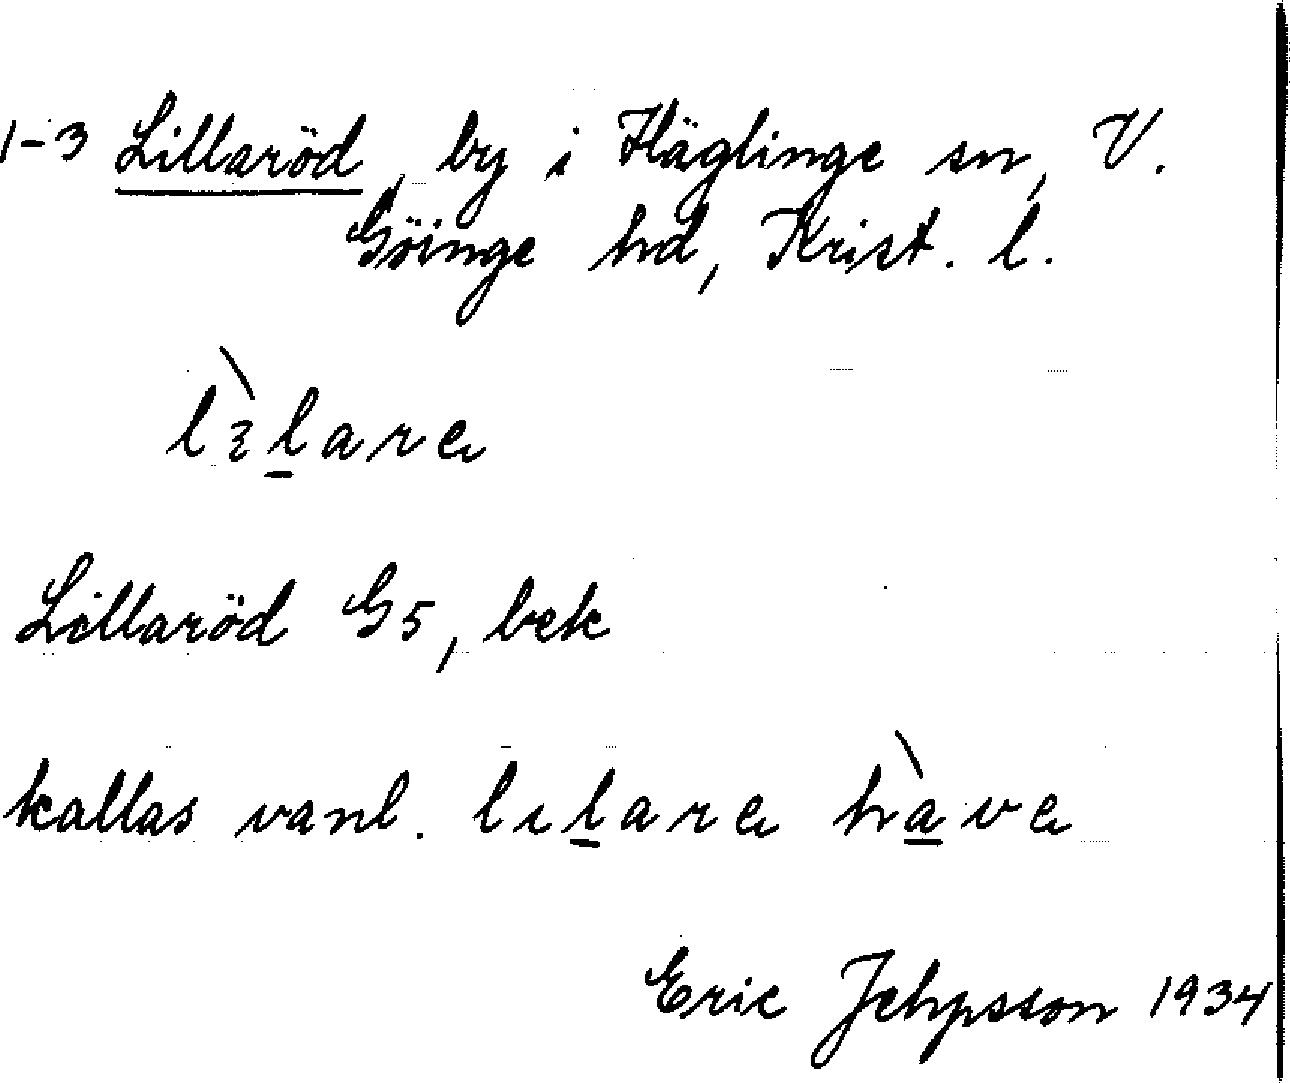 1-3 Lillaröd, by i Häglinge sn, V.
Göinge hd, Krist. l.
lìlare
Lillaröd G5, bek
kallas vanl. lılare hàve
Eric Jehpsson 1934